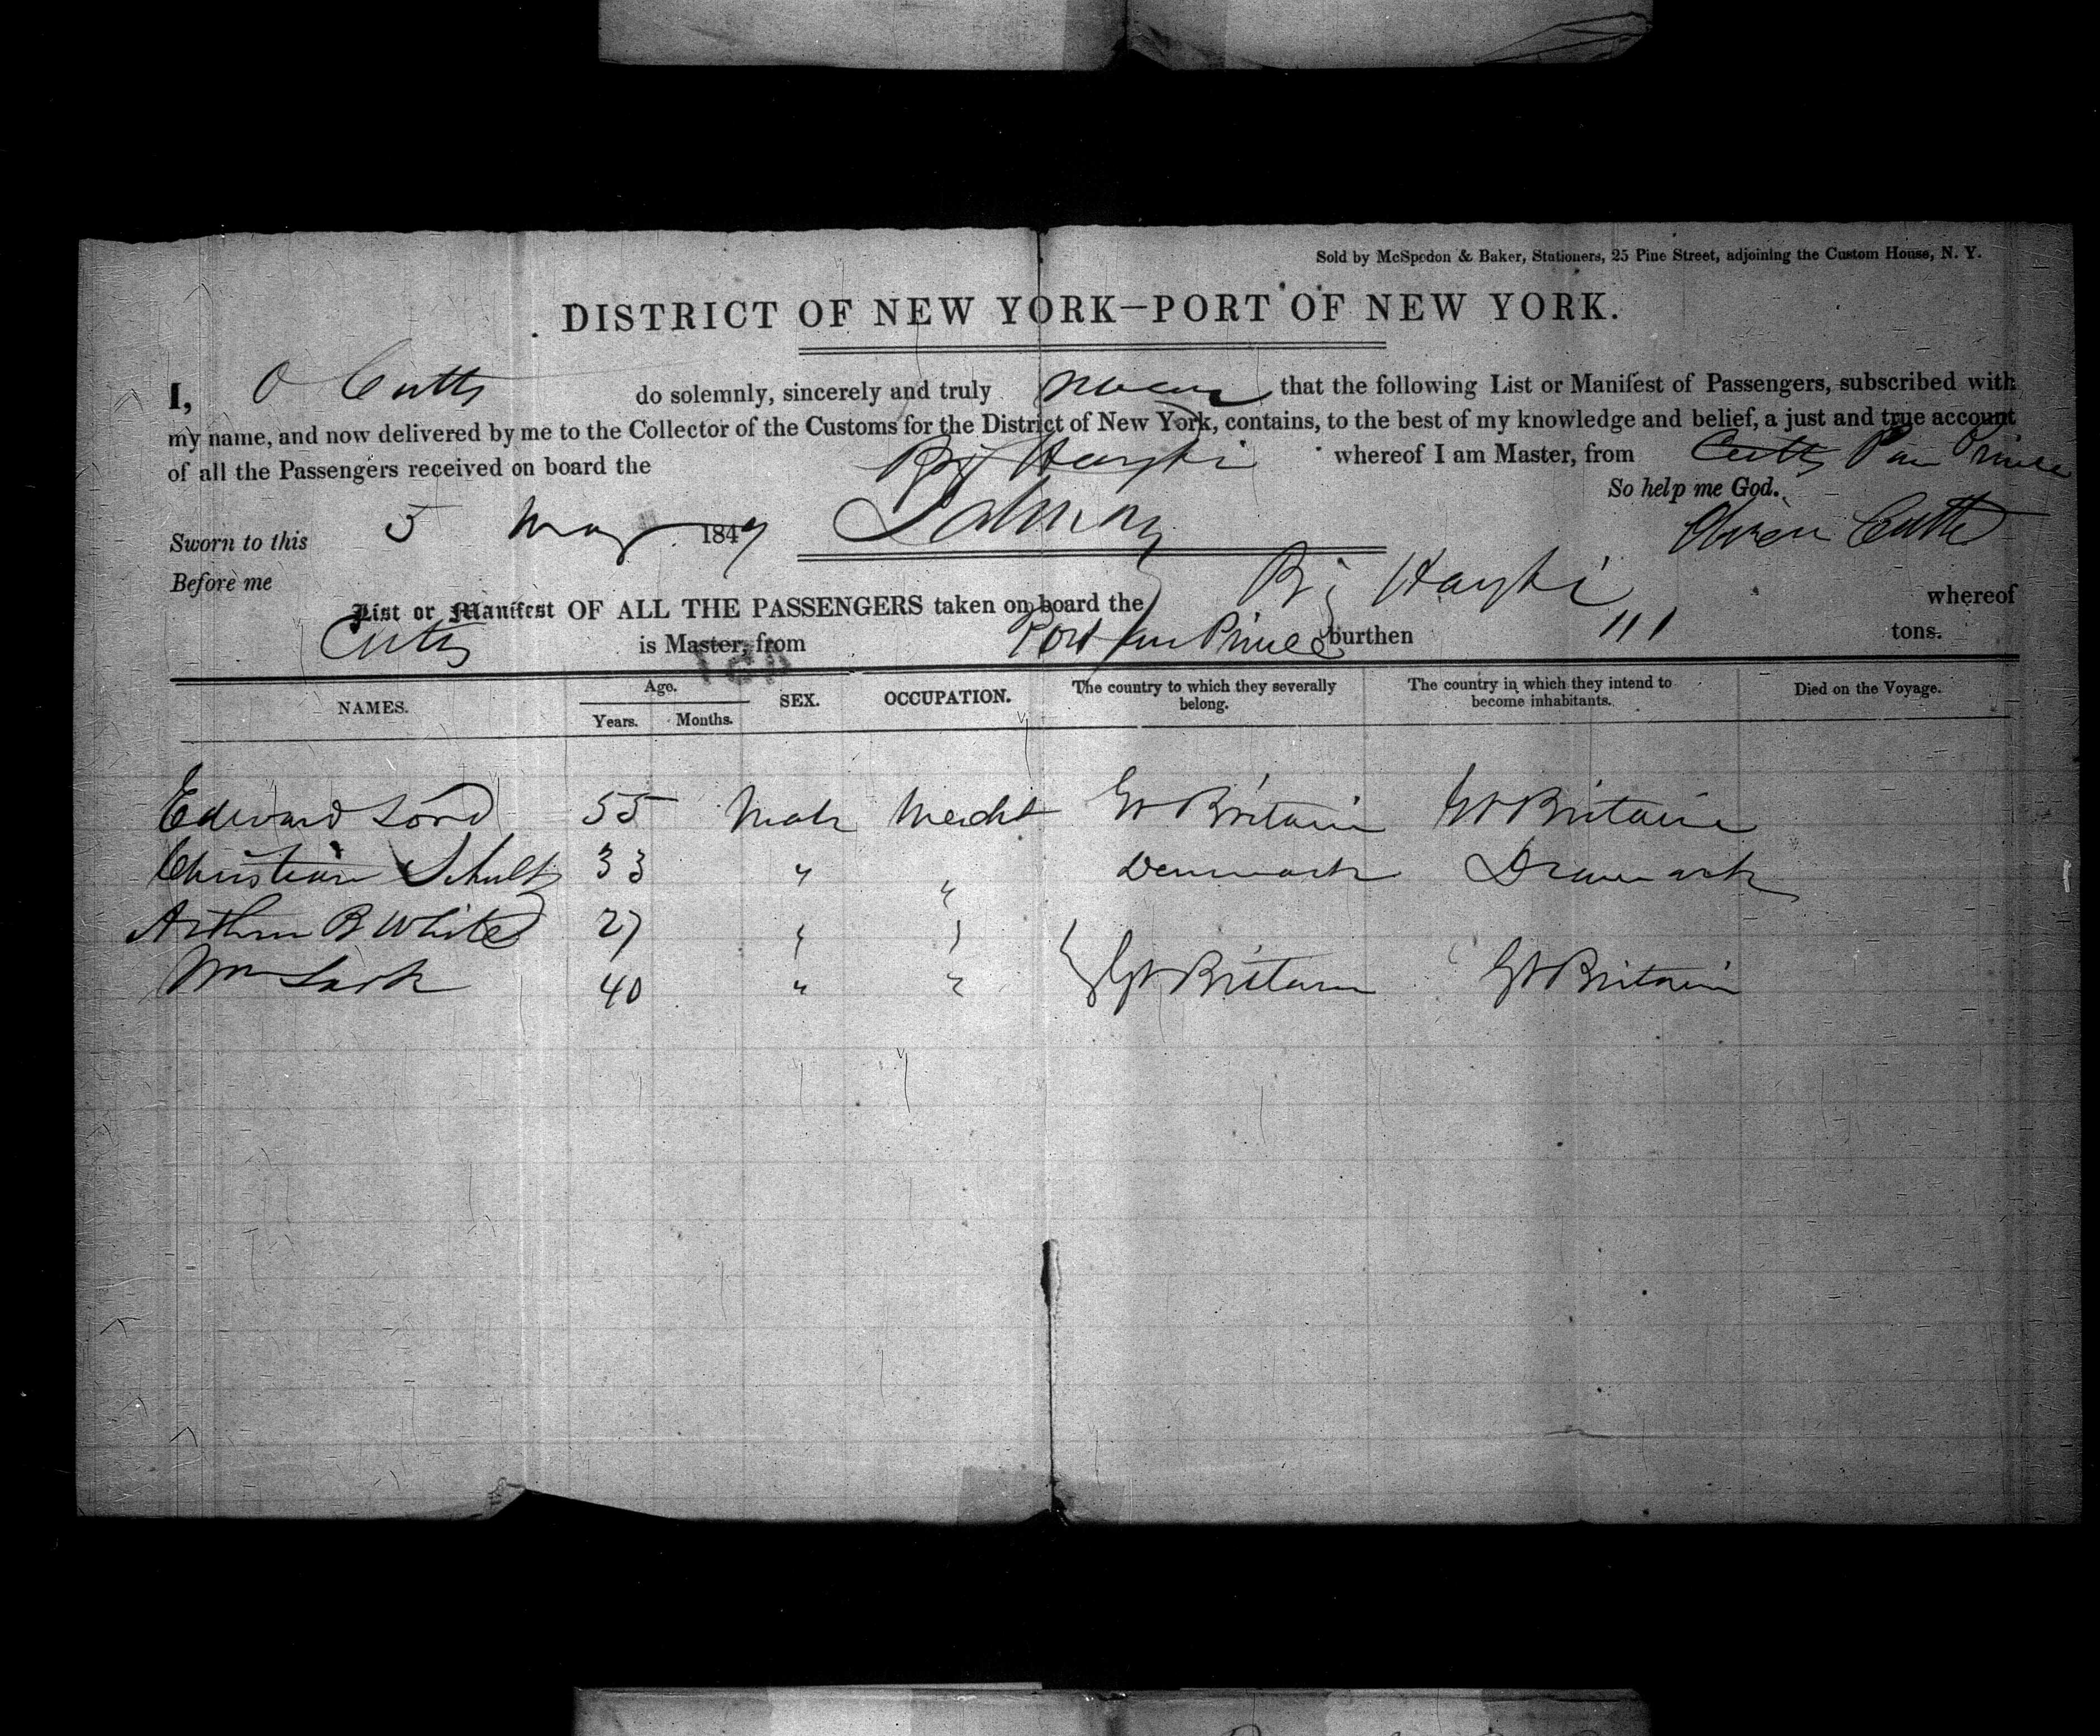 Sold by McSpedon & Baker, Stationers, 25 Pine Street, adjoining the Custom House, N. Y.
DISTRICT OF NEW YORK—PORT OF NEW YORK.
I, O Cutts do solemnly, sincerely and truly swear that the following List or Manifest of Passengers, subscribed with
my name, and now delivered by me to the Collector of the Customs for the District of New York, contains, to the best of my knowledge and belief, a just and true account
of all the Passengers received on board the Brig whereof I am Master, from Cutts Prince
So help me God.
Sworn to this 5 May 1849 Cutts
Before me
List or Manifest OF ALL THE PASSENGERS taken on board the Brig whereof
Cutts is Master, from Port au Prince burthen 111 tons.
NAMES. Age. Years. Months. SEX. OCCUPATION. The country to which they severally belong. The country in which they intend to become inhabitants. Died on the Voyage.
Edward Lord 55 Male Mercht Gt Britain Gt Britain
Christian Schultz 33 " " Denmark Denmark
Arthur B White 27 " "
Wm 40 " " Gt Britain Gt Britain